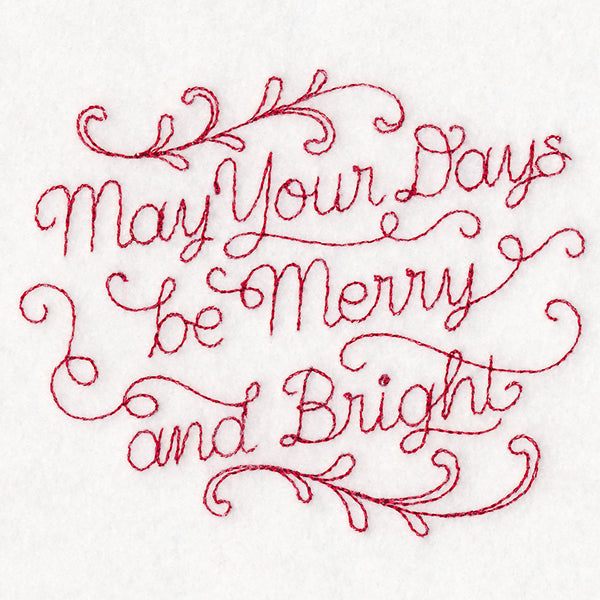 May Your Days
be Merry
and Bright